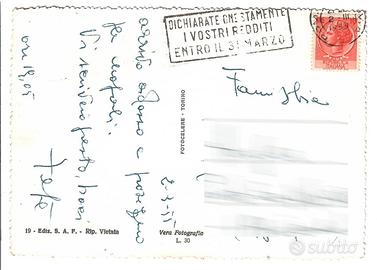 DICHIARATE ONESTAMENTE
I VOSTRI REDDITI
ENTRO IL 31 MARZO
Famiglia
arrivo adesso e proseguo
per Napoli.
Vi scriverò presto, baci
ore 18,05
2-3-55
FOTOCELERE - TORINO
19 - Ediz. S. A. F. - Rip. Vietata
Vera Fotografia
L. 30
subito